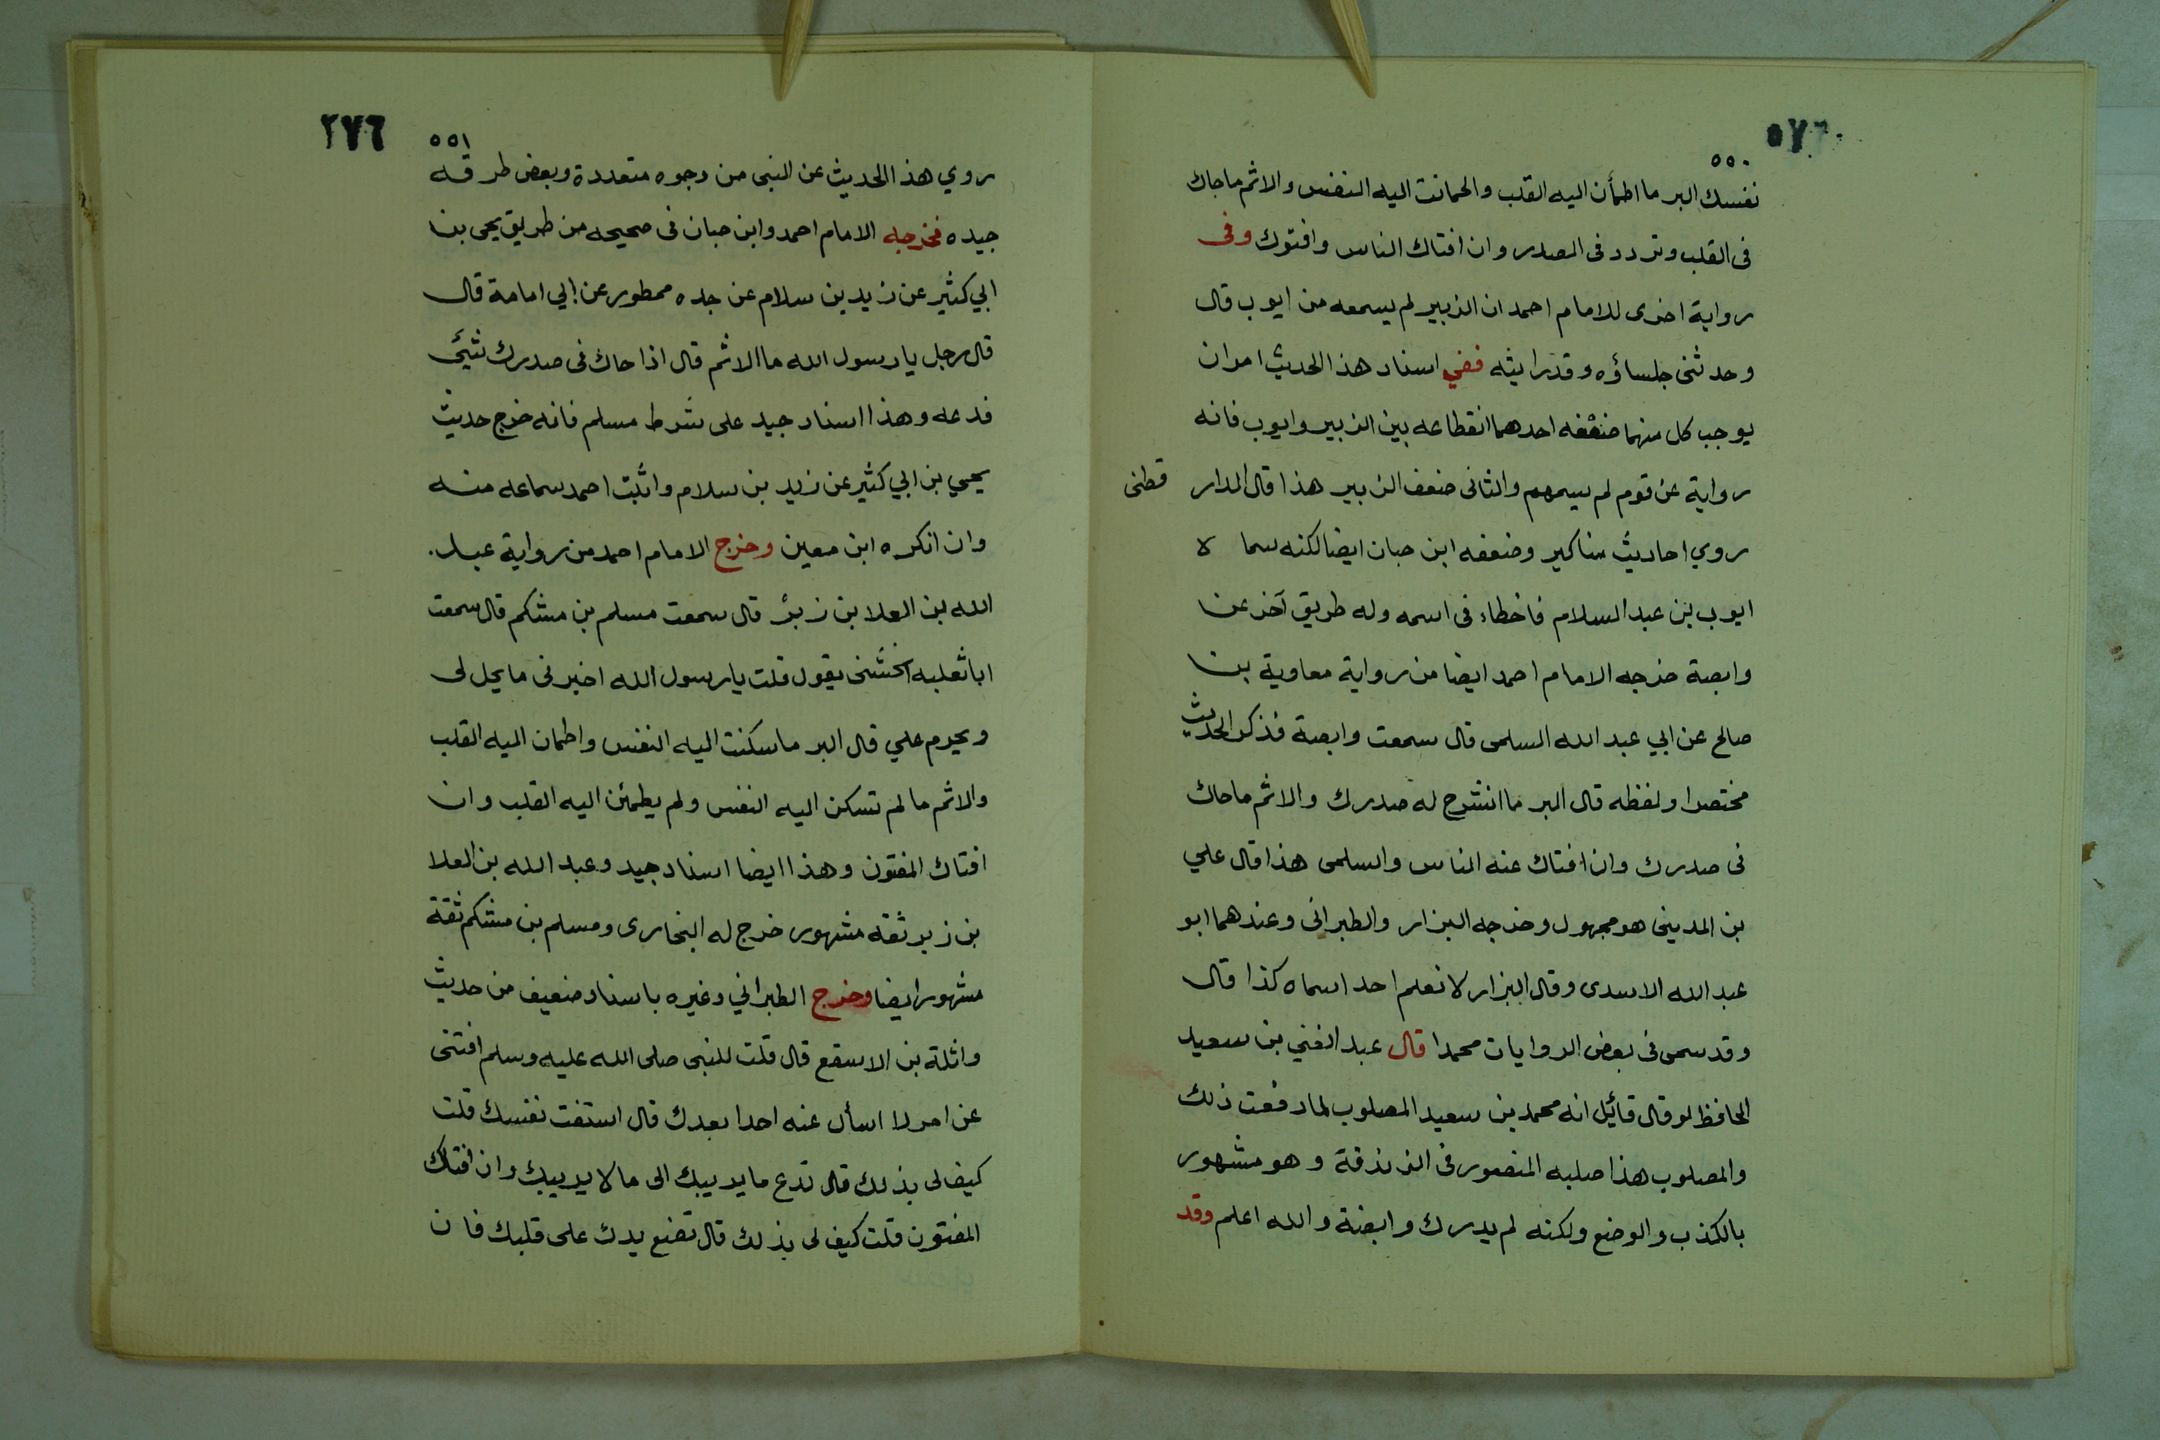 ٥٧٦
٥٥٠
نفسك البر ما اطمأن اليه القلب والحمانت اليه النفس والاثم ماحاك
فى القلب وتردد فى الصدر وان افتاك الناس وافتوك وفى
رواية اخرى للامام احمد ان الزبير لم يسمعه من ايوب قال
وحدثنى جلساؤه وقد رايته ففي اسناد هذا الحديث امران
يوجب كل منهما ضعفه احدهما انقطاعه بين الزبير وايوب فانه
رواية عن قوم لم يسمهم والثانى ضعف الزبير هذا قال الدار قطنى
روي احاديث مناكير وضعفه ابن حبان ايضا لكنه سما ه
ايوب بن عبد السلام فاخطاء فى اسمه وله طريق آخر عن
وابصة خرجه الامام احمد ايضا من رواية معاوية بن
صالح عن ابي عبد الله السلمى قال سمعت وابصة فذكر الحديث
مختصرا ولفظه قال البر ما انشرح له صدرك والاثم ماحاك
فى صدرك وان افتاك عنه الناس والسلمى هذا قال علي
بن المدينى هو مجهول وخرجه البزار والطبرانى وعندهما ابو
عبد الله الاسدى وقال البزار لا نعلم احد اسماه كذا قال
وقد سمى فى بعض الروايات محمدا قال عبد الغني بن سعيد
الحافظ لو قال قائيل انه محمد بن سعيد المصلوب لما دفعت ذلك
والمصلوب هذا صلبه المنصور فى الزندقة وهو مشهور
بالكذب والوضع ولكنه لم يدرك وابصة والله اعلم وقد
٢٧٦
٥٥١
روي هذا الحديث عن النبى من وجوه متعددة وبعض طرقه
جيده فخرجه الامام احمد وابن حبان فى صحيحه من طريق يحى بن
ابي كثير عن زيد بن سلام عن جده ممطور عن ابي امامة قال
قال رجل يا رسول الله ما الاثم قال اذا حاك فى صدرك شيئ
فدعه وهذا اسناد جيد على شرط مسلم فانه خرج حديث
يحيي بن ابي كثير عن زيد بن سلام واثبت احمد سماعه منه
وان انكره ابن معين وخرج الامام احمد من رواية عبد.
الله بن العلا بن زبر قال سمعت مسلم بن مشكم قال سمعت
ابا ثعلبه الخشنى يقول قلت يا رسول الله اخبرنى ما يحل لى
ويحرم علي قال البر ما سكنت اليه النفس واطمان اليه القلب
والاثم ما لم تسكن اليه النفس ولم يطمئن اليه القلب وان
افتاك المفتون وهذا ايضا اسناد جيد وعبد الله بن العلا
بن زبر ثقه مشهور خرج له البخارى ومسلم بن مشكم ثقة
مشهور ايضا وخرج الطبراني وغيره باسناد ضعيف من حديث
واثلة بن الاسقع قال قلت للنبى صلى الله عليه وسلم افتنى
عن امر لا اسأل عنه احدا بعدك قال استفت نفسك قلت
كيف لى بذلك قال تدع ما يريبك الى ما لا يريبك وان افتاك
المفتون قلت كيف لى بذلك قال تضع يدك على قلبك فان